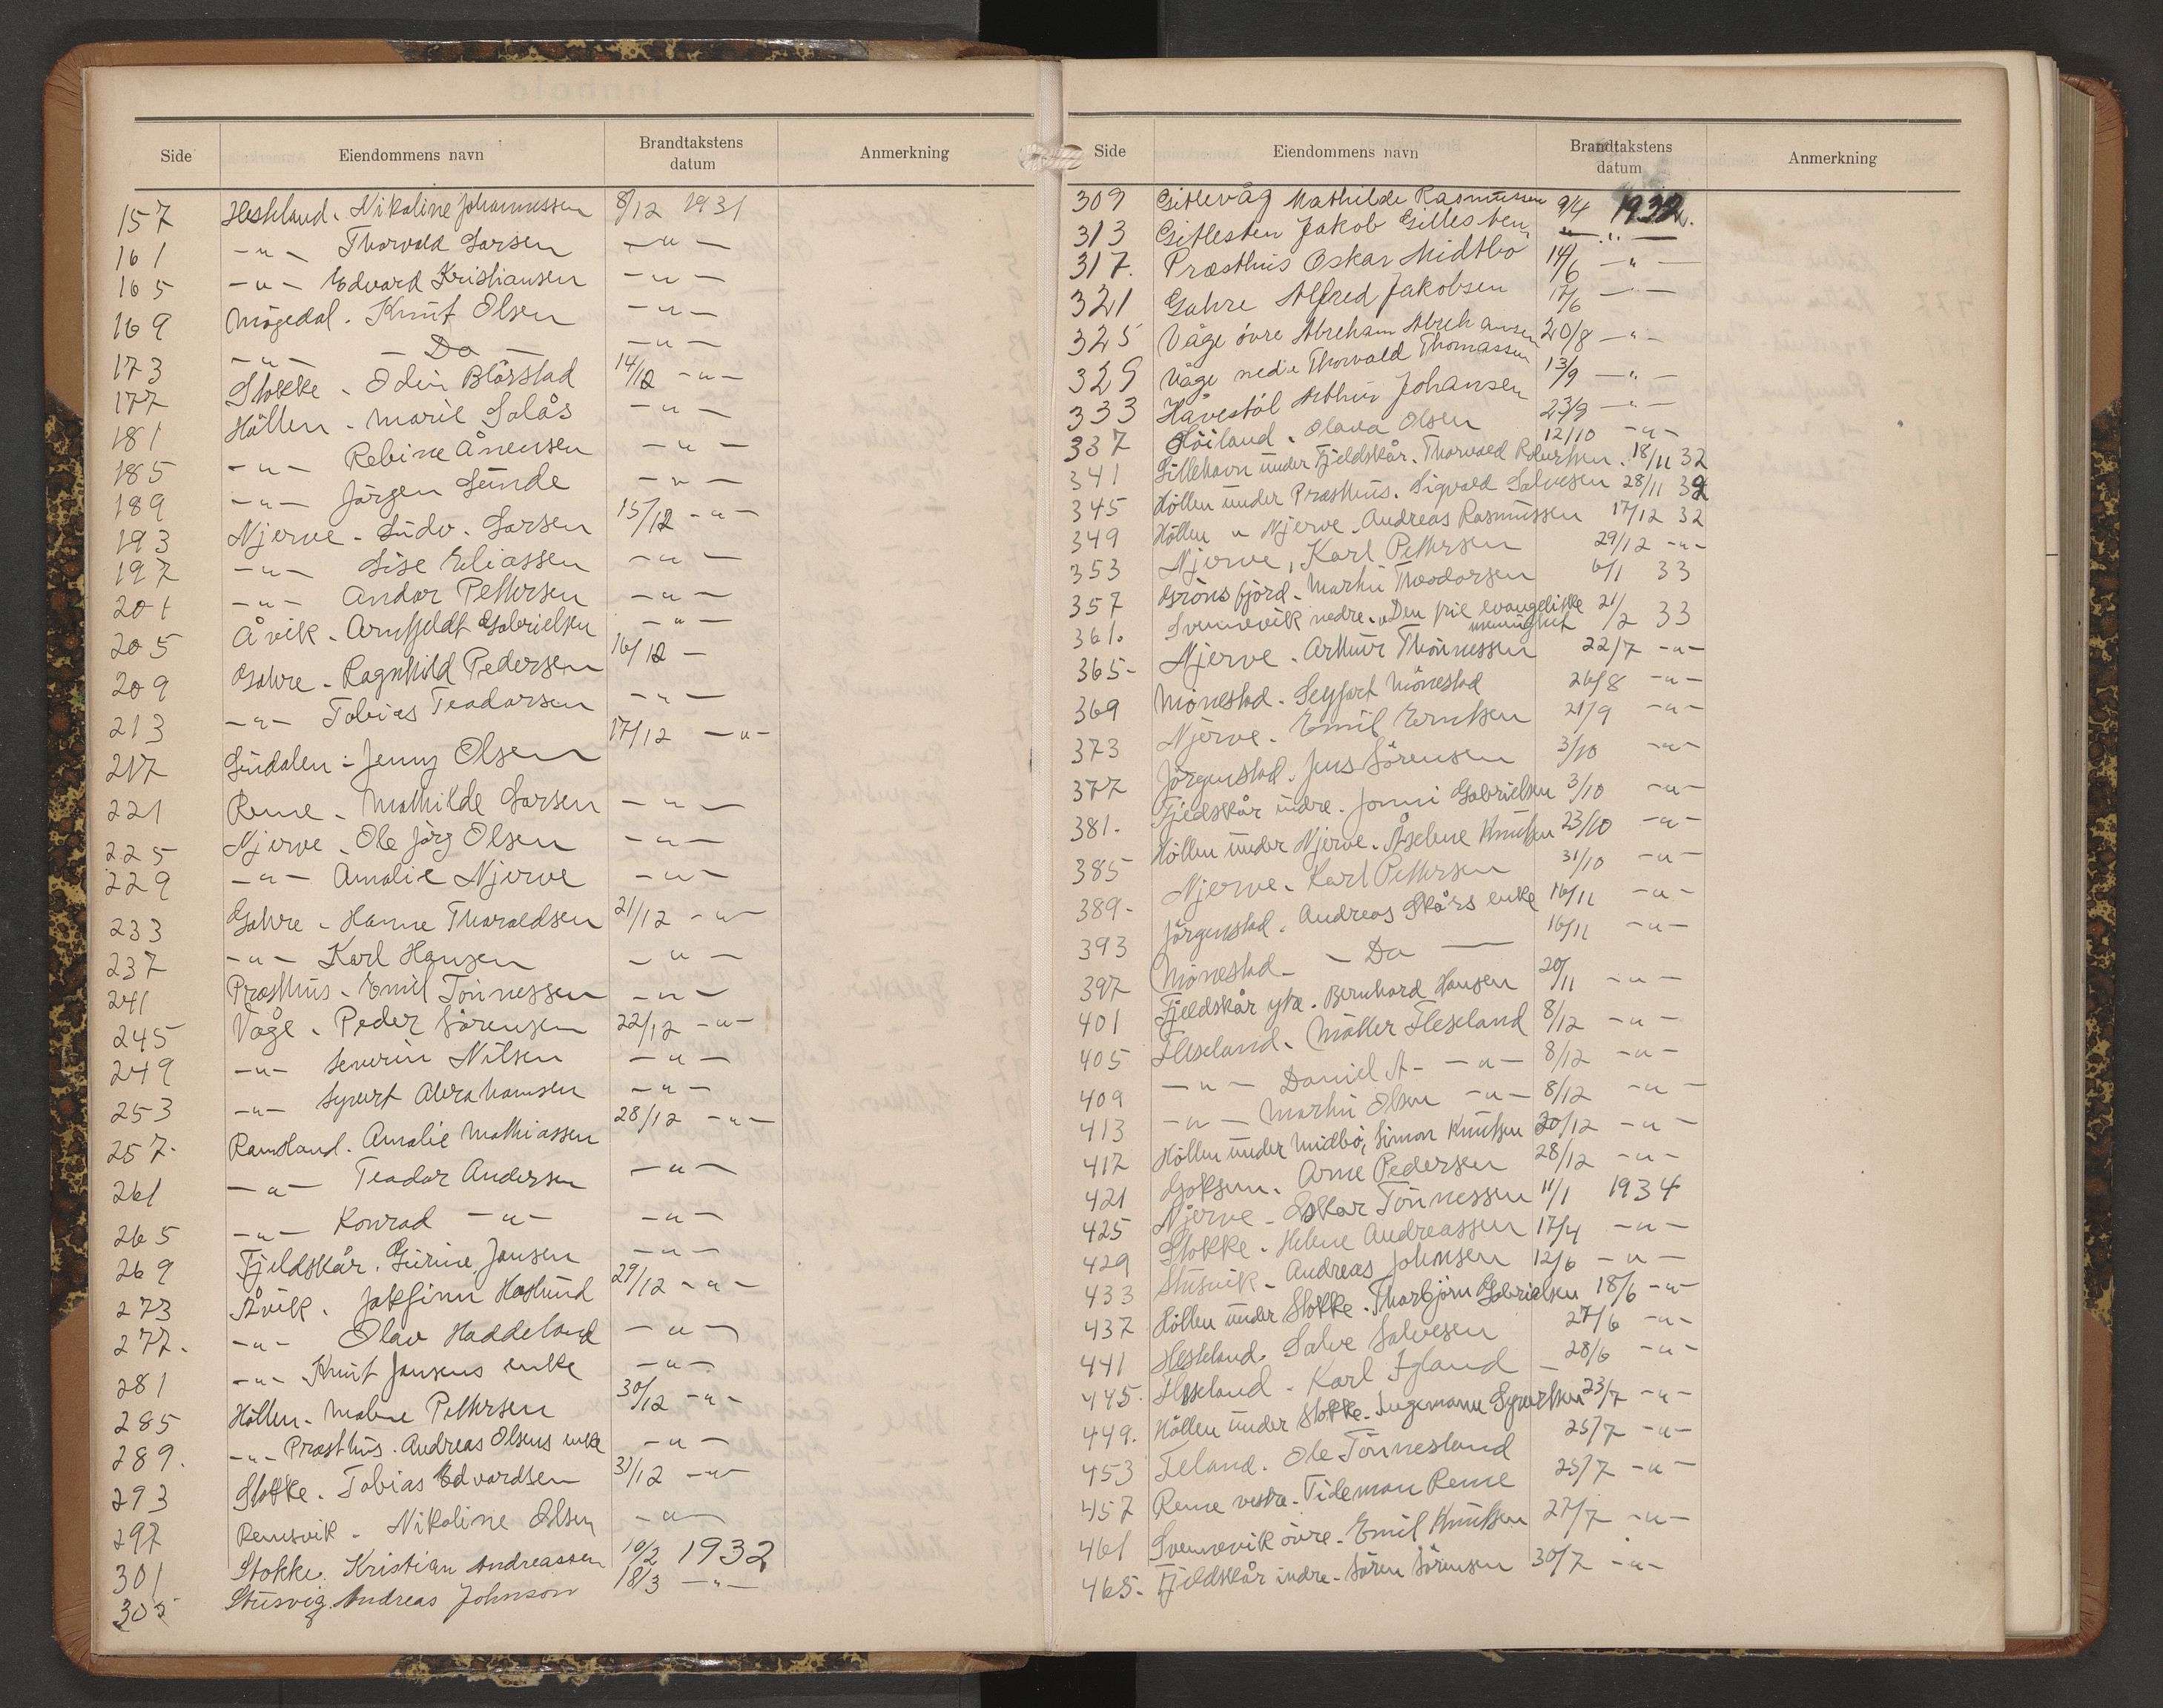 Side Eiendommens navn Brandtakstens datum Anmerkning
157 Heskland. Nikoline Johannessen 8/12 1931
161 -"- Thorvald Larsen -"-
165 -"- Edvard Kristiansen -"-
169 Mögedal. Knut Olsen -"-
173 -"- - Do - -"-
177 Stokke - Odin Blörstad 14/12 -"-
181 Höllen - Marie Solås -"-
185 -"- Rebine Ånensen -"-
189 -"- Jörgen Lunde -"-
193 Njerve - Ludv. Larsen 15/12 -"-
197 -"- Lise Eliassen -"-
201 -"- Andor Pettersen -"-
205 Åvik - Arntfeldt Gabrielsen -"-
209 Gahre - Ragnhild Pedersen 16/12 -
213 -"- Tobias Teodorsen -"-
217 Lindalen - Jenny Olsen 17/12 -"-
221 Reme - Mathilde Larsen -"-
225 Njerve - Ole Jörg Olsen -"-
229 -"- Amalie Njerve -"-
233 Gahre - Hanne Tharaldsen 21/12 -"-
237 -"- Karl Hansen -"-
241 Præsthus - Emil Tönnessen -"-
245 Våge - Peder Sörensen 22/12 -"-
249 -"- Severin Nilsen -"-
253 -"- Syvert Abrahamsen -"-
257. Ramsland. Amalie Mathiassen 28/12 -"-
261 -"- Teodor Andersen -"-
265 -"- Konrad -"- -"-
269 Fjeldskår. Gurine Jansen -"-
273 Åvik. Jakfinn Haslund 29/12 -"-
277. -"- Olav Haddeland -"-
281 -"- Knut Jansens enke -"-
285 Höllen - Malene Pettersen 30/12 -"-
289. -"- Præsthus. Andreas Olsens enke -"-
293 Stokke. Tobias Edvardsen 31/12 -"-
297 Remesvik - Nikoline Olsen -"-
301 Stokke. Kristian Andreassen 10/2 1932
305 Stusvig. Andreas Johnson 18/3 -"-
Side Eiendommens navn Brandtakstens datum Anmerkning
309 Gitlevåg Mathilde Rasmussen 9/4 1932.
313 Gitlesten Jakob Gitlesten -"-
317. Præsthus Oskar Midtbö 14/6 -"-
321 Gahre Alfred Jakobsen 17/6 -"-
325 Våge övre Abreham Abrehamsen 20/8 -"-
329 Våge nedre Thorvald Thomassen 13/9 -"-
333 Håvestöl Arthur Johansen 23/9 -"-
337 Höiland. Olava Olsen 12/10 -"-
341 Lillehavn under Fjeldskår. Thorvald Robertsen. 18/11 32
345 Höllen under Præsthus. Sigvald Salvesen 28/11 32
349 Höllen u Njerve. Andreas Rasmussen 17/12 32
353 Njerve, Karl Pettersen 29/12 -"-
357 Grönsfjörd. Martin Theodorsen 6/1 33
361. Svennevik nedre. "Den frie evangeliske menighet 21/2 33
365- Njerve. Arthur Thönnessen 22/7 -"-
369 Mönestad. Seyfart Mönestad 26/8 -"-
373 Njerve. Emil Erntsen 21/9 -"-
377 Jörgenstad. Jens Sörensen 3/10 -"-
381. Fjeldskår indre. Jonni Gabrielsen 3/10 -"-
385 Höllen under Njerve. Åselene Knutsen 23/10 -"-
389- Njerve. Karl Pettersen 31/10 -"-
393 Jörgenstad. Andreas Skårs enke 16/11 -"-
397 Mönestad - Do - 16/11 -"-
401 Fjeldskår ytre. Bernhard Hansen 20/11 -"-
405 Fleseland. Möller Fleseland 8/12 -"-
409 -"- Daniel A- -"- 8/12 -"-
413 -"- Martin Olsen -"- 8/12 -"-
417 Höllen under Midbö, Simon Knutsen 20/12 -"-
421 Goksem. Arne Pedersen 28/12 -"-
425 Njerve. Oskar Tönnessen 11/1 1934
429 Stokke. Helene Andreassen 17/4 -"-
433 Stusvik - Andreas Johnsen 12/6 -"-
437 Höllen under Stokke. Thorbjörn Gabrielsen 18/6 -"-
441 Heskeland. Salve Salvesen 27/6 -"-
445. Fleseland - Karl Igland 28/6 -"-
449. Höllen under Stokke. Ingemann Syvertsen 23/7 -"-
453 Feland. Ole Tönnesland 25/7 -"-
457 Reme vestre. Tideman Reme 25/7 -"-
461 Svennevik övre. Emil Knutsen 27/7 -"-
465. Fjeldskår indre. Sören Sörensen 30/7 -"-